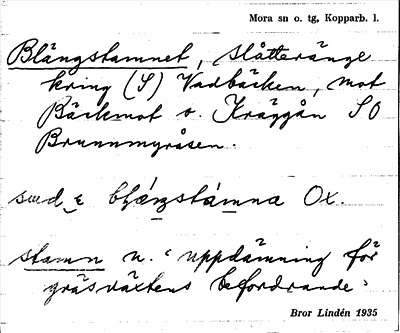 Mora sn o. tg, Kopparb. l.
Blängstamnet, slåtteränge
kring (S) Vadbäcken, mot
Bäckmot o. Kräggån SO
Brunnmyråsen.
Ox.
stamn n. "uppdämning för
gräsväxtens befordrande"
Bror Lindén 1935